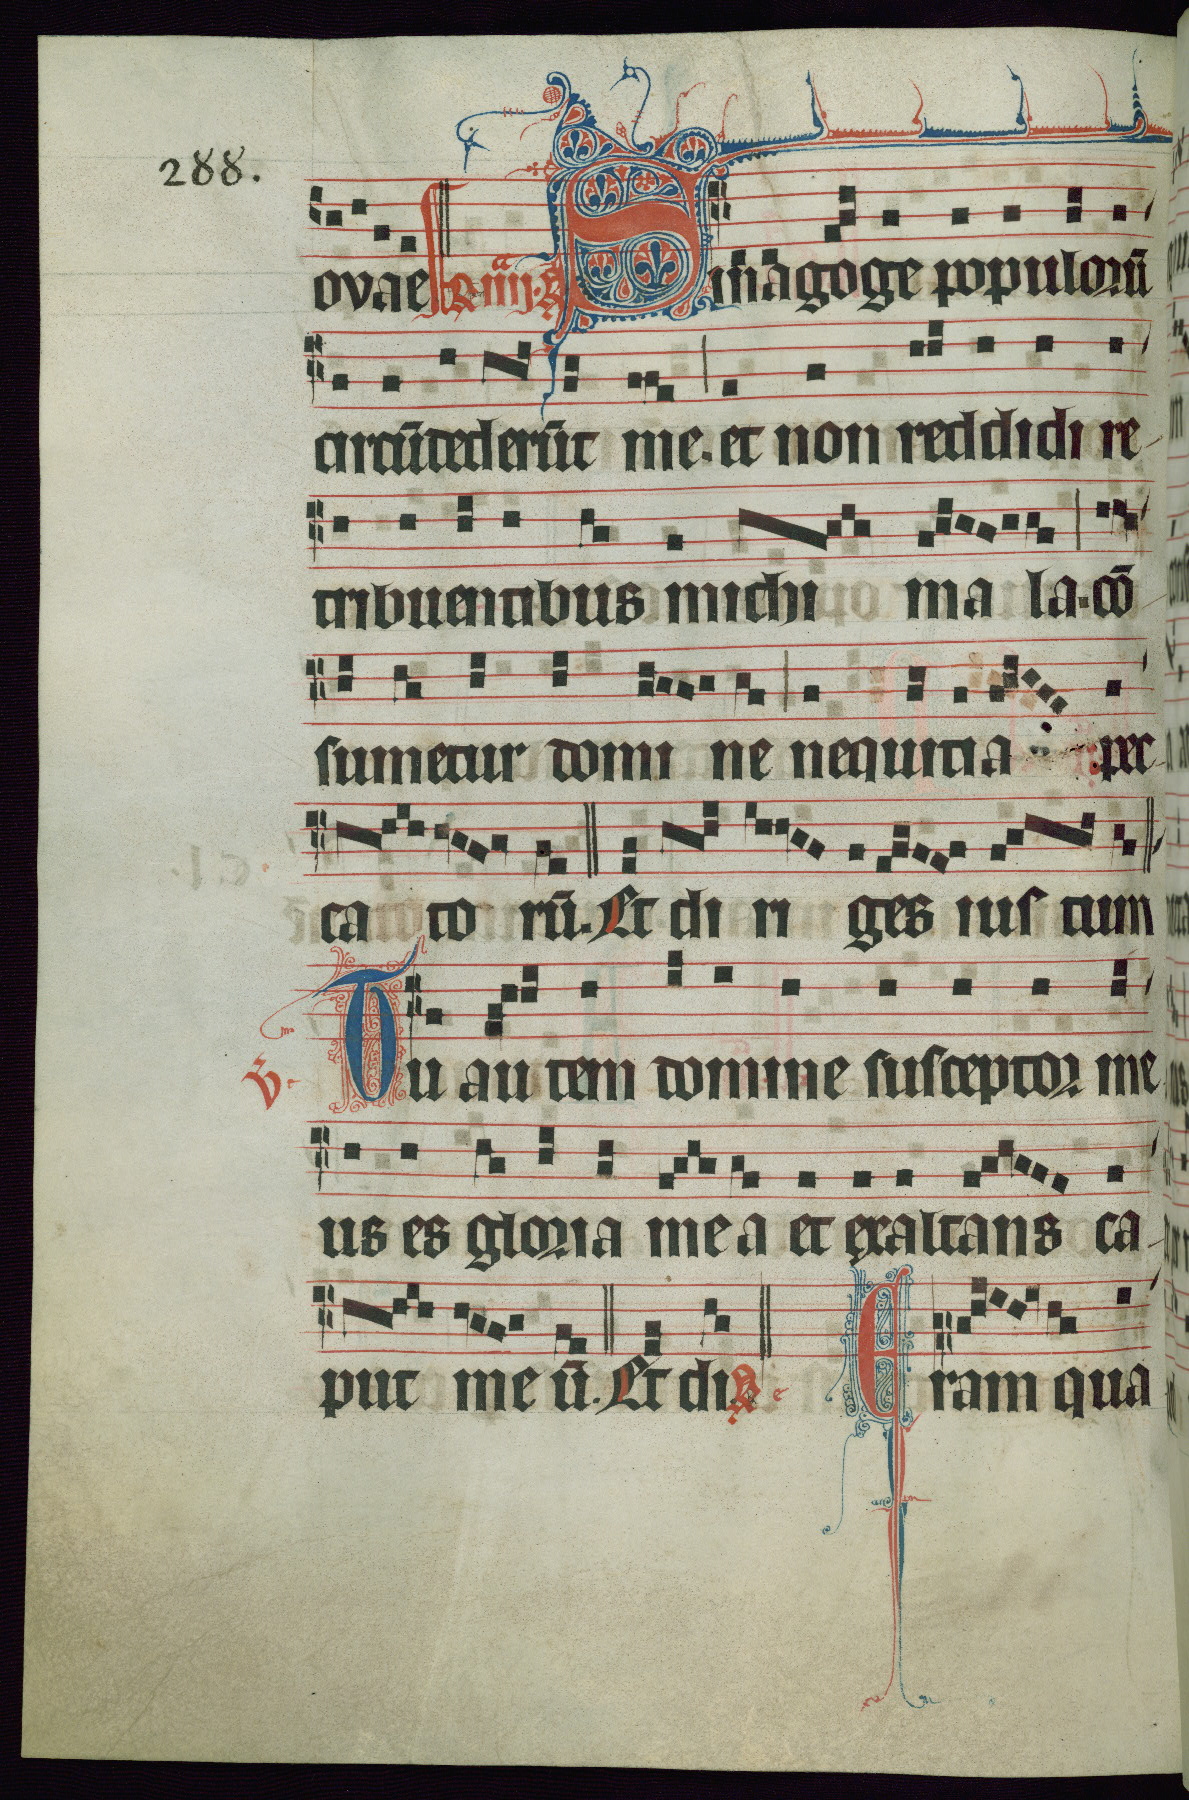 288.
ovae a iiij. R Sinagoge populorū
circūdederūt me. et non reddidi re-
tribuentibus michi ma la. cō
sumetur domi ne nequitia pec-
ca to rū. Et di ri ges ius tum
V. Tu au tem domine susceptor me
us es gloria me a et exaltans ca-
put me ū. Et di R. Eram qua